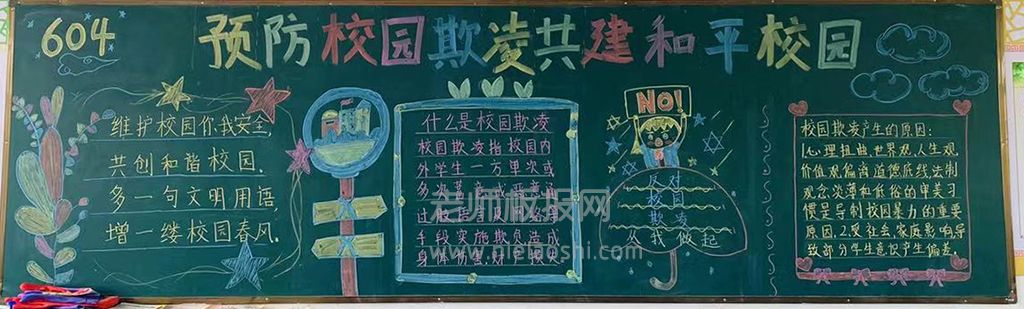 604
预防校园欺凌共建和平校园
维护校园你我安全,
共创和谐校园.
多一句文明用语,
增一缕校园春风.
什么是校园欺凌
校园欺凌指校园内
外学生一方单次或
多次
过肢体言语及网络等
手段实施欺负造成
身体伤
NO!
反对
校园
欺凌
从我做起
校园欺凌产生的原因:
1.心理扭曲,世界观,人生观,
价值观偏离道德底线,法制
观念淡薄和低俗的审美习
惯是导制校园暴力的重要
原因.2.受社会,家庭影响导
致部分学生意识产生偏差.
老师板报网